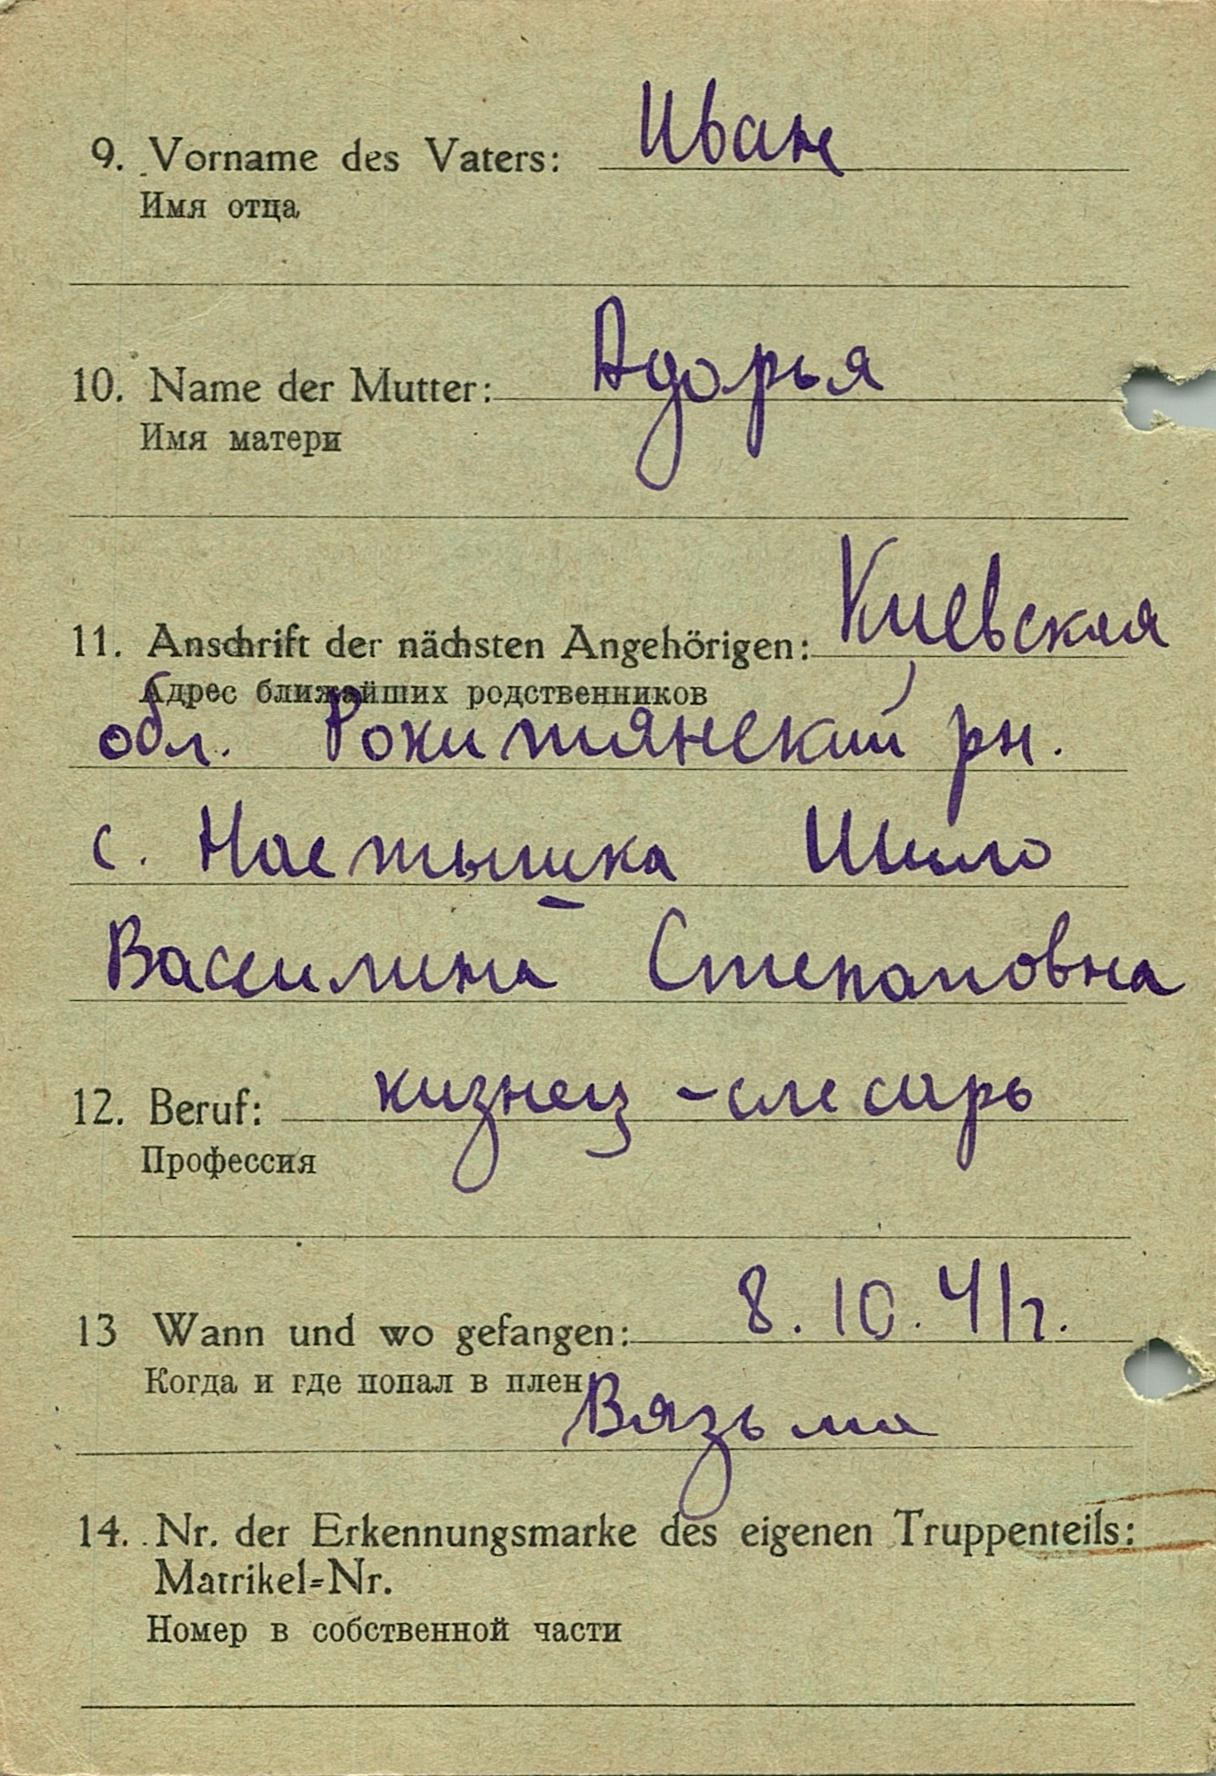 9. Vorname des Vaters: Иван
Имя отца
10. Name der Mutter: Адорья
Имя матери
11. Anschrift der nächsten Angehörigen: Киевская
Адрес ближайших родственников
обл. Рокитянский рн.
с. Настышка Шило
Василина Степановна
12. Beruf: кизнец - слесарь
Профессия
13 Wann und wo gefangen: 8. 10. 41 г.
Когда и где попал в плен
Вязьма
14. Nr. der Erkennungsmarke des eigenen Truppenteils:
Matrikel-Nr.
Номер в собственной части